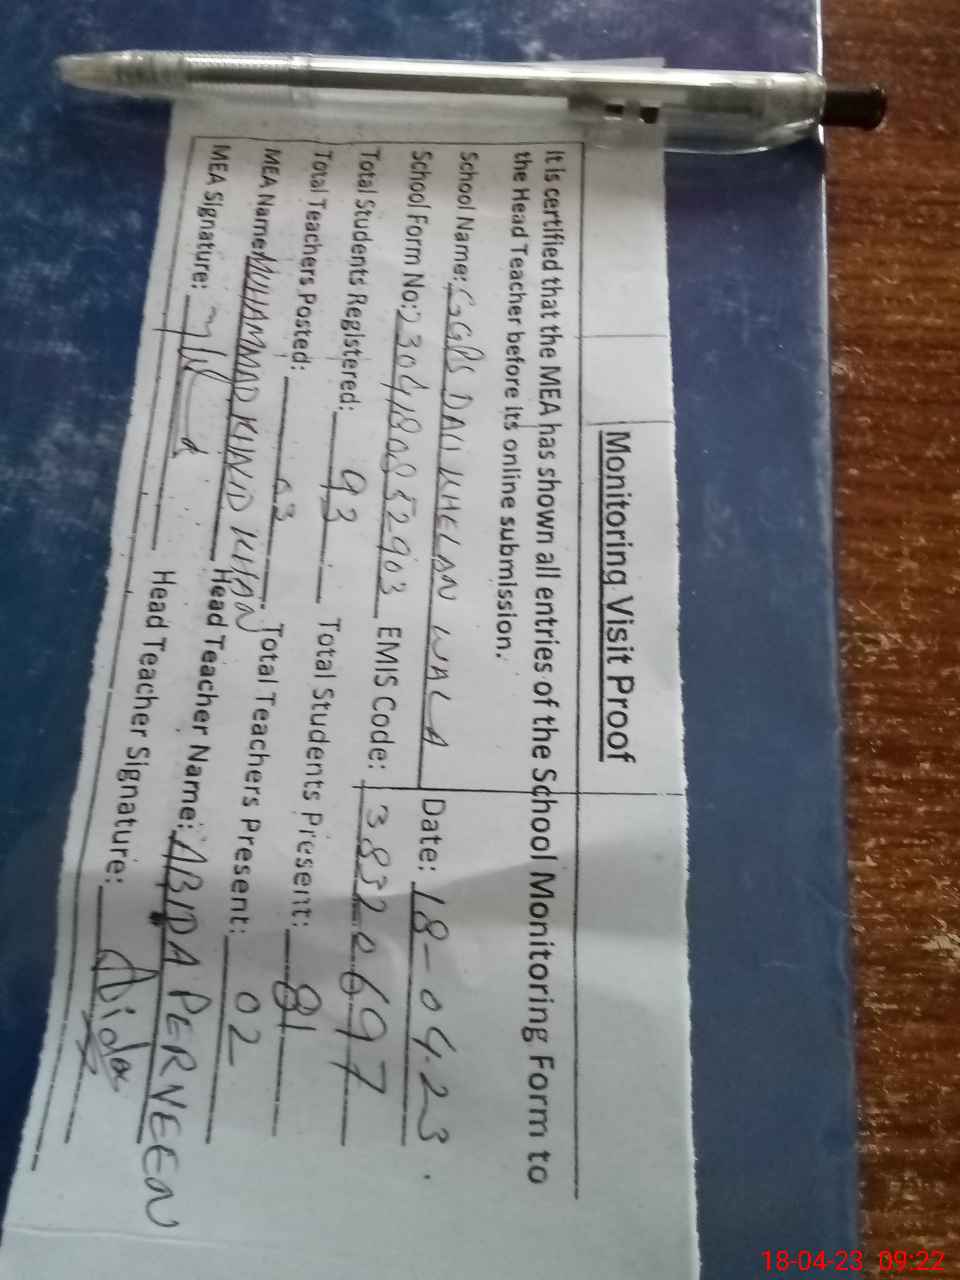 Monitoring Visit Proof
It is certified that the MEA has shown all entries of the School Monitoring Form to
the Head Teacher before its online submission.
School Name: GGPS DAULKHELAN WALA Date: 18-04-23.
School Form No: 2304180852903 EMIS Code: 38320697
Total Students Registered: 93 Total Students Present: 81
Total Teachers Posted: 03 Total Teachers Present: 02
MEA Name: MUHAMMAD KUND KHAN Head Teacher Name: ABIDA PERNEEN
MEA Signature: Head Teacher Signature: Abida
18-04-23 09:22